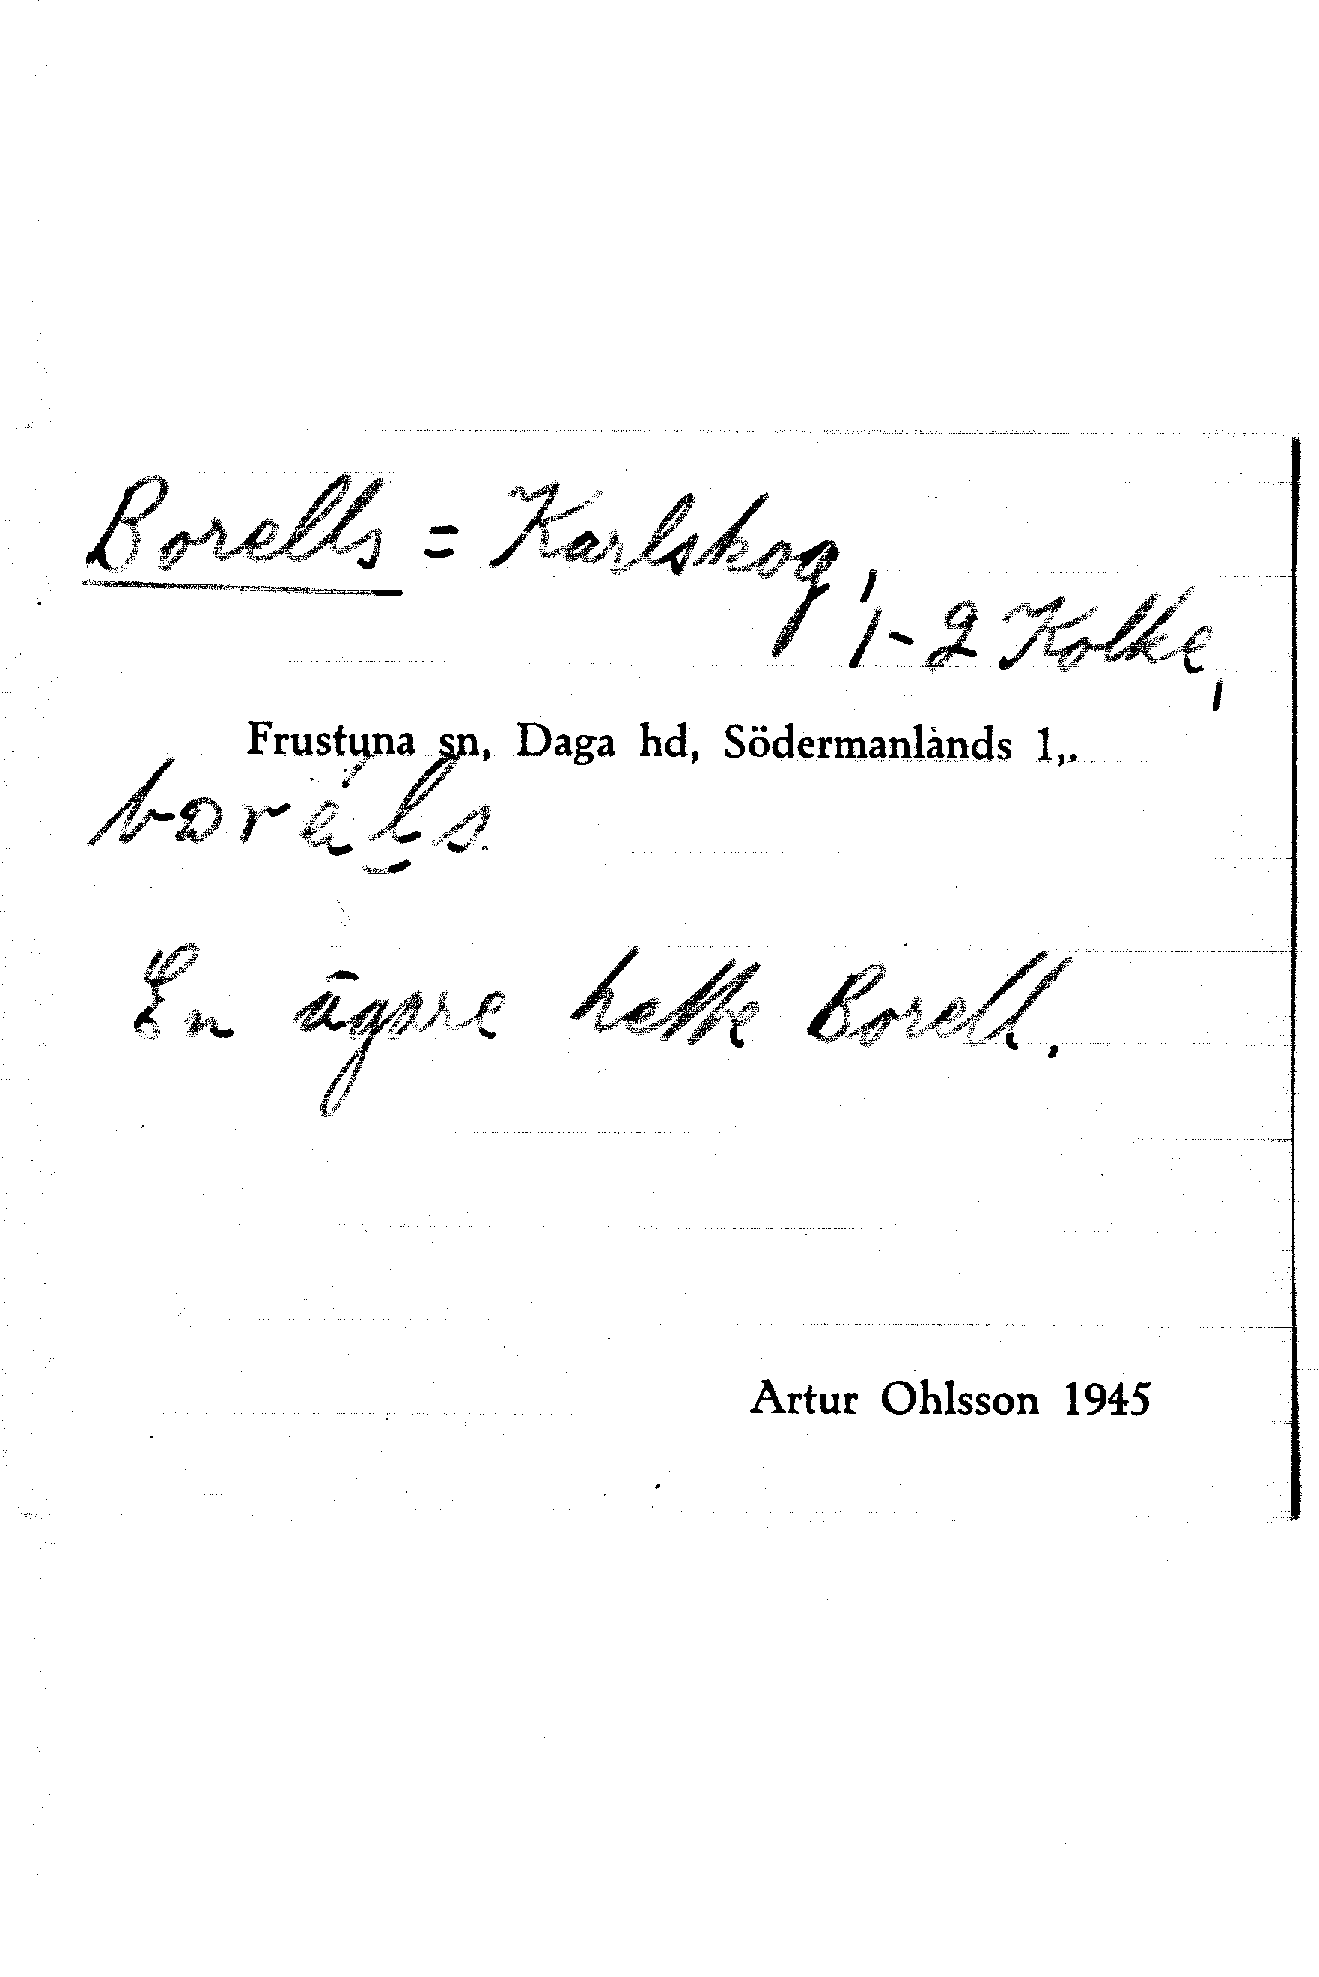 Borells = Karlskog,
1-2 Kolke,
Frustuna sn, Daga hd, Södermanlands l,.
En ägare hette Borell.
Artur Ohlsson 1945